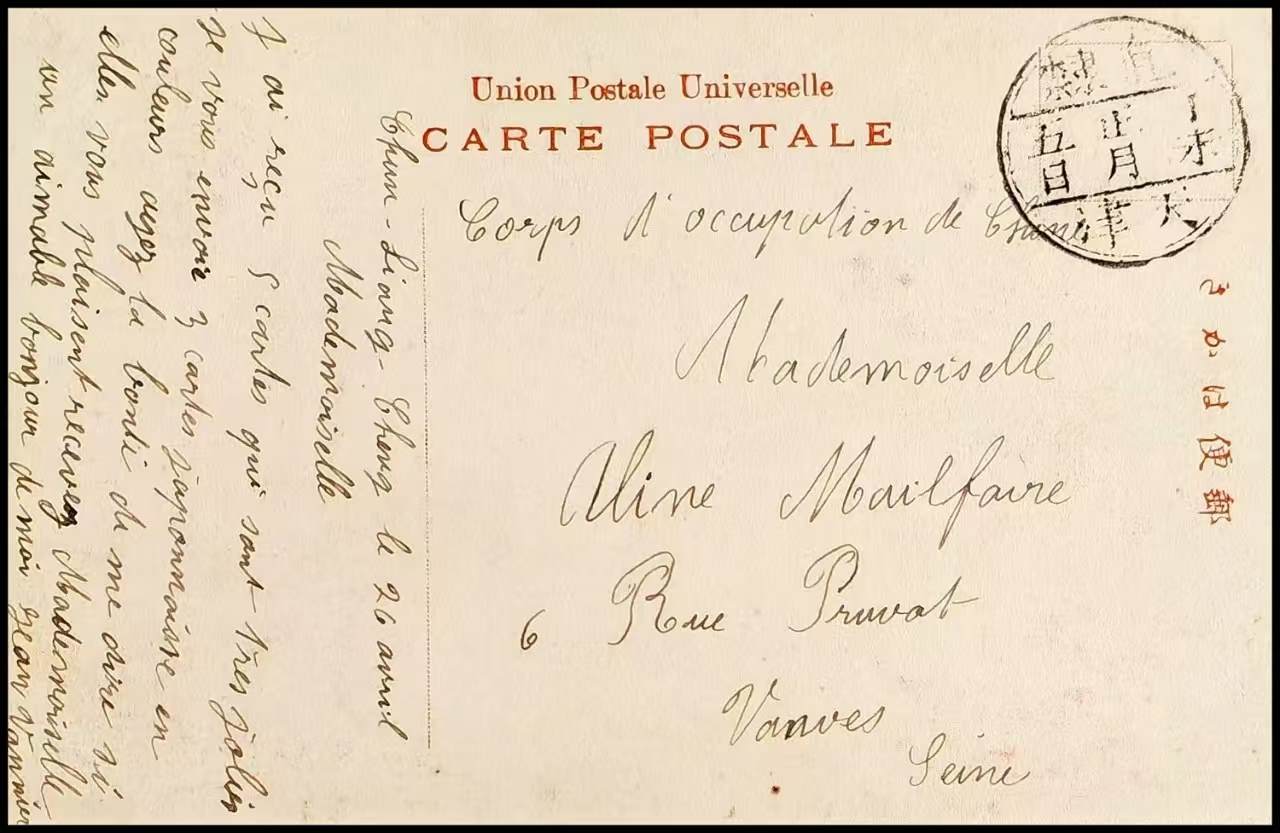 Union Postale Universelle
CARTE POSTALE
Corps d'occupation de Chine
Mademoiselle
Aline Mailfaire
6 Rue Pruvot
Vanves
Seine
きかは便郵
直隸
丁未
正月
五日
天津
Chun-Liang-Cheng le 26 avril
Mademoiselle
J ai reçu 5 cartes qui sont très jolies
je vous envoir 3 cartes japonnaise en
couleurs ayez la bonté de me dire si
elles vous plaisent recevez Mademoiselle
un aimable bonjour de moi Jean Vannier